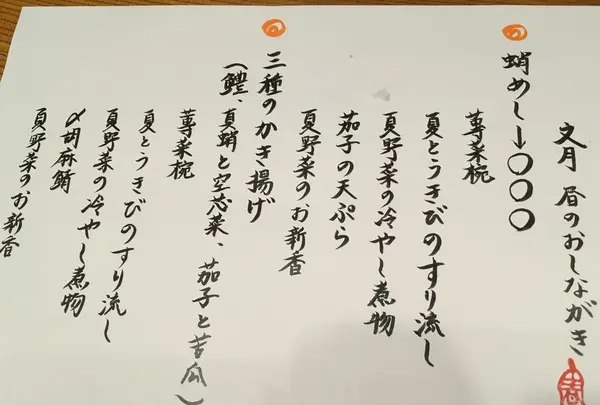 文月 昼のおしながき
蛸めし一〇〇〇
蓴菜椀
夏とうきびのすり流し
夏野菜の冷やし煮物
茄子の天ぷら
夏野菜のお新香
三種のかき揚げ
(鱧、真蛸と空芯菜、茄子と苦瓜)
蓴菜椀
夏とうきびのすり流し
夏野菜の冷やし煮物
〆胡麻鯖
夏野菜のお新香